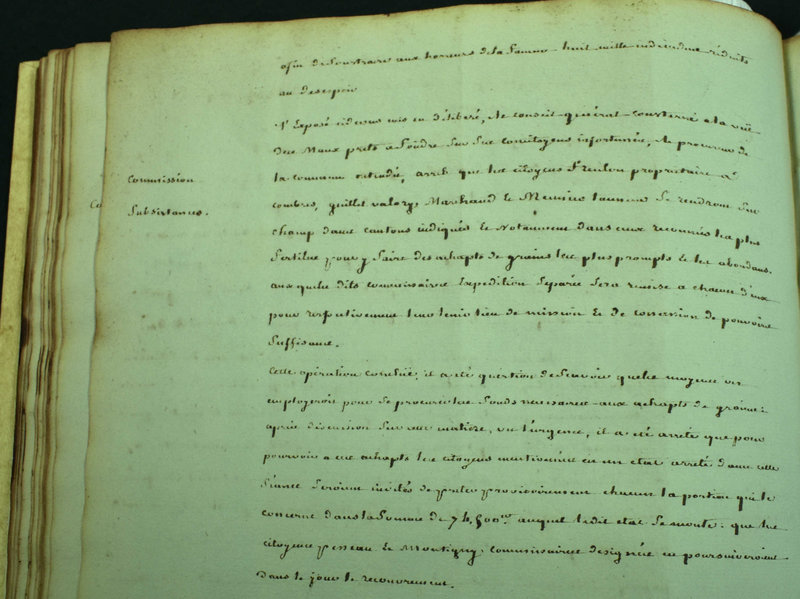 afin de soustraire aux horreurs de la famine huit mille individus réduits
au desespoir
L'Exposé cidessus mis en délibéré, le conseil général consterné a la vüe
des Maux prets a fondre sur ses concitoyens infortunés, le procureur de
la commune entendu, arrete que les citoyens proprietaire a
commission
combres, guillet valory, Marchand le se rendront sur
Subsistances.
champ dans cantons indiqués et Notamment dans ceux reconnus les plus
fertiles pour y faire des achapts de grains les plus prompts et les abondans.
auxquels dits commissaires Expedition separée sera remise a chacun d'eux
pour respectivement leur tenir lieu de mission et de concession de pouvoirs
suffisans.
Cette opération il a été question de scavoir quels moyens on
employeroit pour se procurer les fonds necessaires aux achapts de grains:
après discussion sur cette matière, vu l'urgence, il a été arreté que pour
pourvoir a ces achapts les citoyens mentionnés en un etat arreté dans cette
séance seroient invités de preter provisoirement chacun la portion qui le
concerne dans la somme de 74,500 auquel ledit etat se monte: que les
citoyens et Montigny, commissaires designés en poursuiveroient
dans le jour le recouvrement.